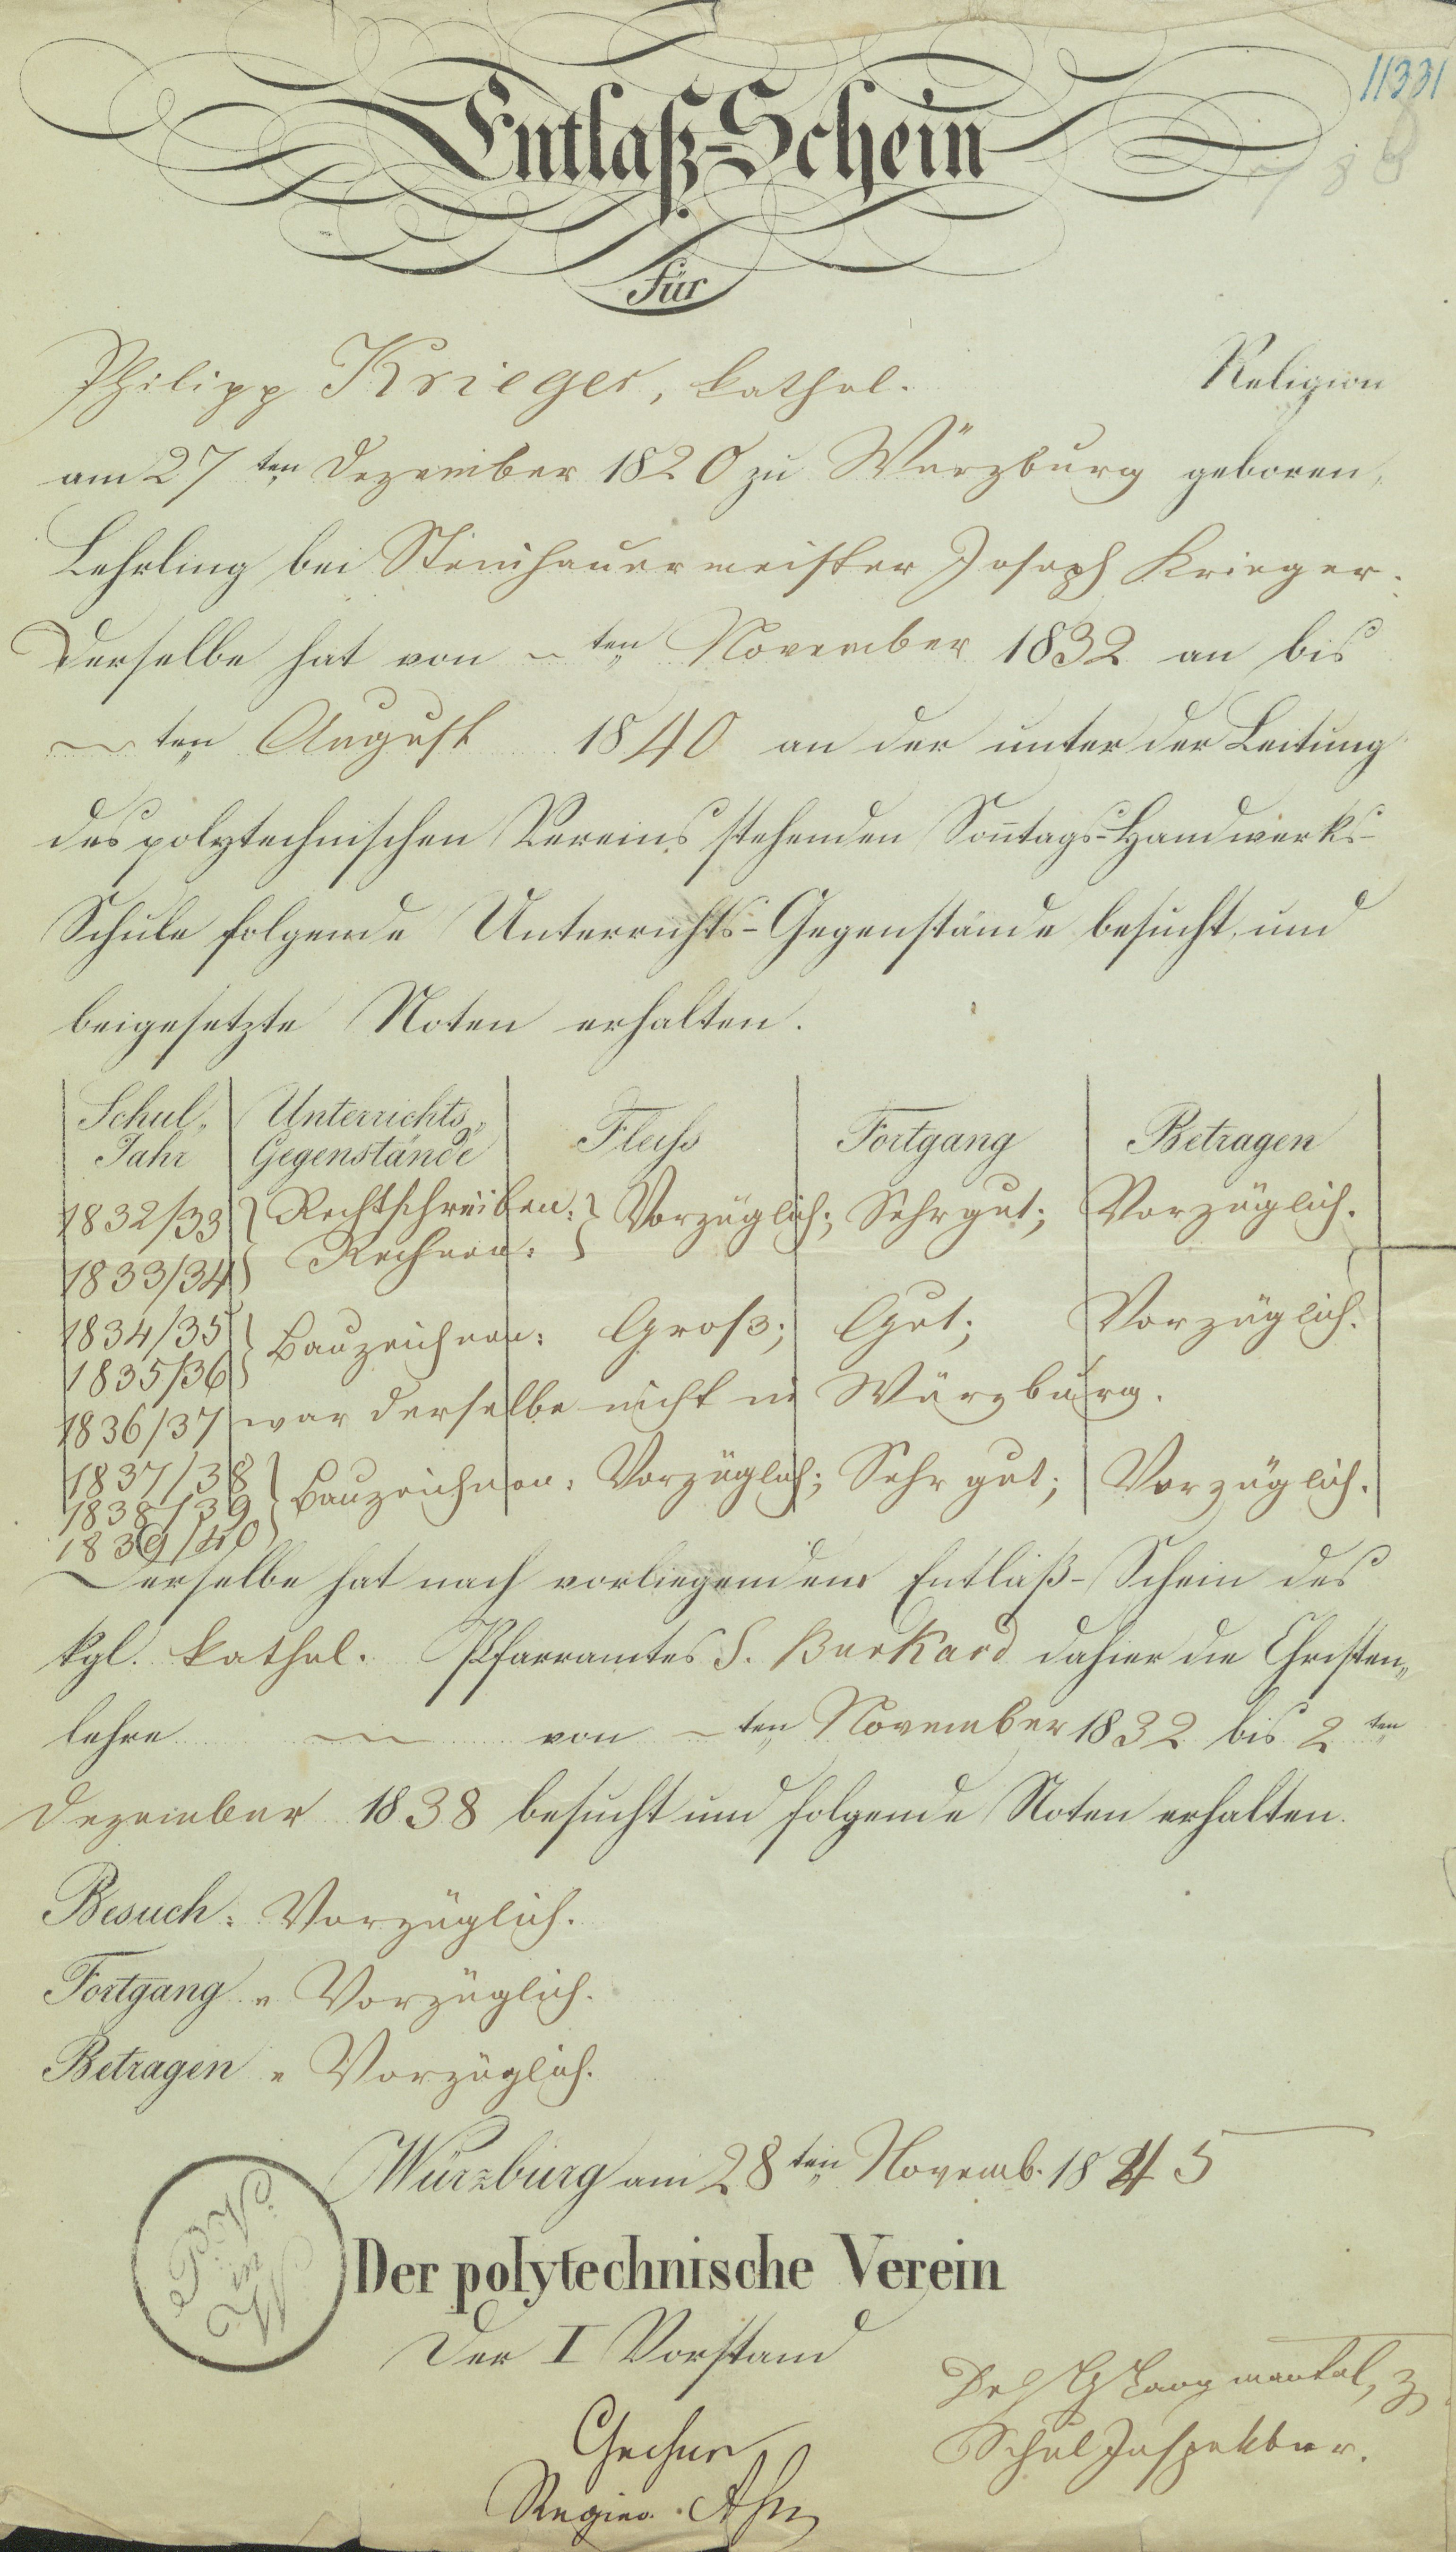 11331
Entlaß-Schein
für
Philipp Krieger, kathol. Religion
am 27ten Dezember 1820 zu Würzburg geboren,
Lehrling bei Steinhauermeister Joseph Krieger.
Derselbe hat von ~ten November 1832 an bis
~ten August 1840 an der unter der Leitung
des polytechnischen Vereins stehenden Soñtags-Handwerks-
Schule folgende Unterrichts-Gegenstände besucht, und
beigesetzte Noten erhalten.
Schul- Unterrichts- Fleiss Fortgang Betragen
Jahr Gegenstände
1832/33 Rechtschreiben: Vorzüglich; Sehr gut; Vorzüglich.
1833/34 Rechnen:
1834/35 Bauzeichnen: Groß; Gut; Vorzüglich.
1835/36
1836/37 war derselbe nicht in Würzburg.
1837/38 Bauzeichnen: Vorzüglich; Sehr gut; Vorzüglich.
1838/39
1839/40
Derselbe hat nach vorliegendem Entlaß-Schein des
kgl. kathol. Pfarramtes S. Burkard dahier die Christen-
lehre ~ von ~ten November 1832 bis 2ten
Dezember 1838 besucht und folgende Noten erhalten.
Besuch: Vorzüglich.
Fortgang " Vorzüglich.
Betragen " Vorzüglich.
Würzburg am 28ten Novemb. 1845
P.V. in W.
Der polytechnische Verein
Der I Vorstand
Schul Inspektor.